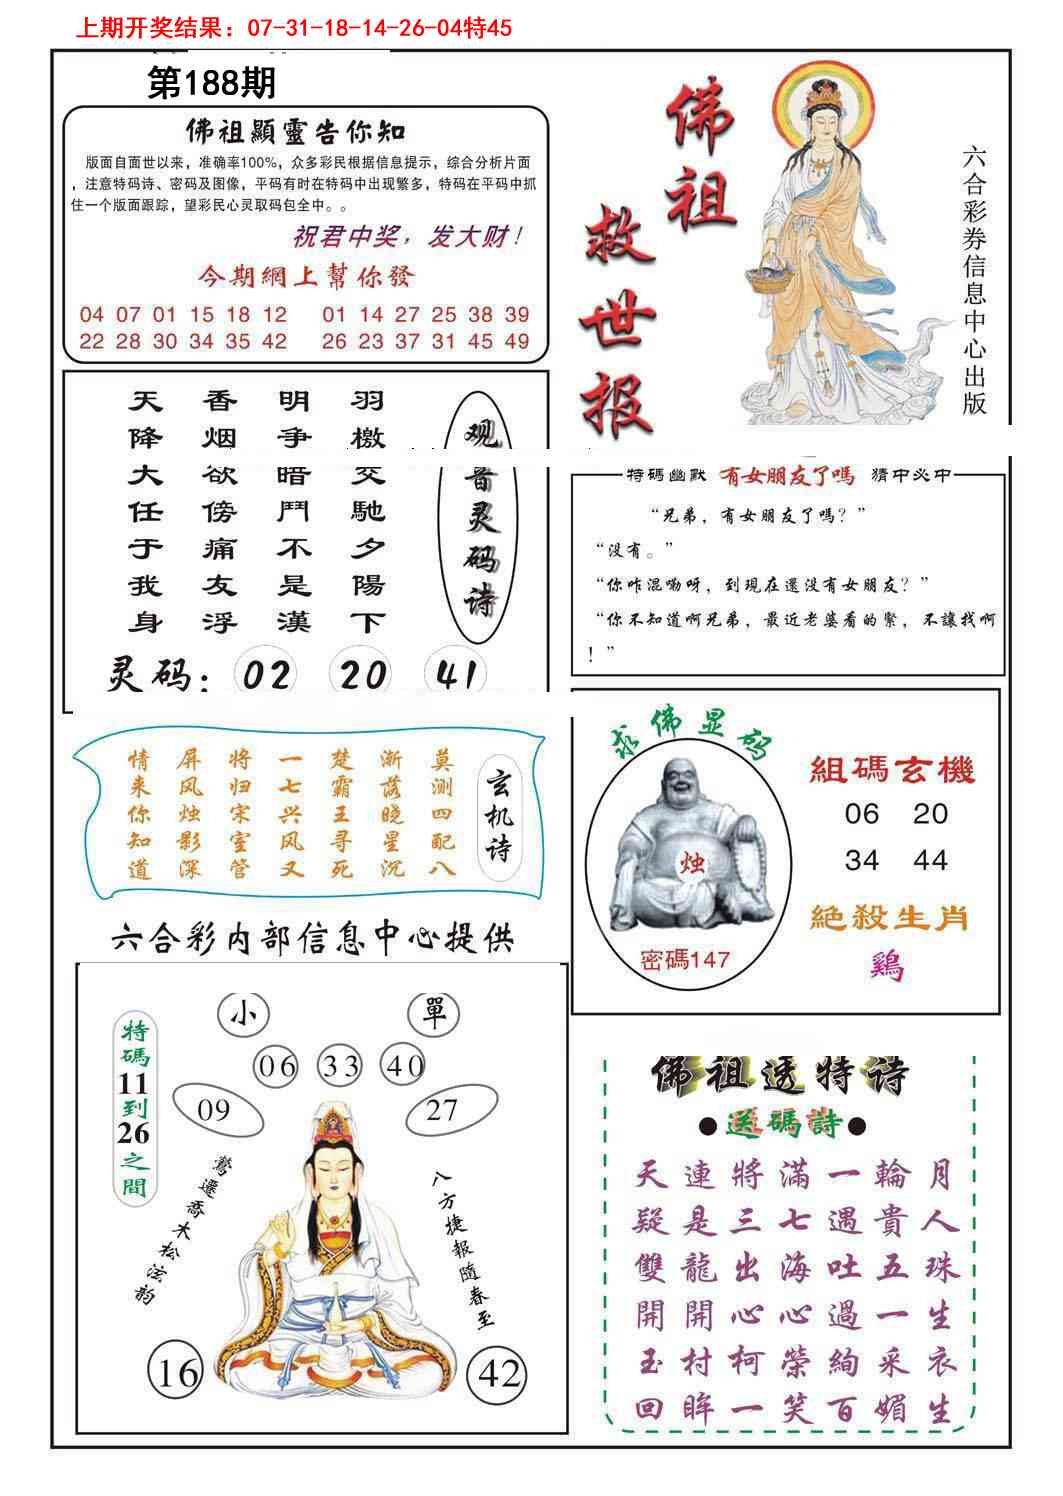 上期开奖结果：07-31-18-14-26-04特45
第188期
佛祖顯靈告你知
版面自面世以来，准确率100%，众多彩民根据信息提示，综合分析片面
，注意特码诗、密码及图像，平码有时在特码中出现繁多，特码在平码中抓
住一个版面跟踪，望彩民心灵取码包全中。。
祝君中奖，发大财！
今期網上幫你發
04 07 01 15 18 12 01 14 27 25 38 39
22 28 30 34 35 42 26 23 37 31 45 49
佛祖
救世报
六合彩券信息中心出版
观音灵码诗
羽檄交馳夕陽下
明争暗鬥不是漢
香烟欲傍痛友浮
天降大任于我身
灵码：02 20 41
特碼幽默 有女朋友了嗎 猜中必中
“兄弟，有女朋友了嗎？”
“没有。”
“你咋混嘞呀，到現在還没有女朋友？”
“你不知道啊兄弟，最近老婆看的緊，不讓我啊
！”
玄机诗
莫测四配八
渐落晓星沉
楚霸王寻死
一七兴风又
将归宋室管
屏风烛影深
情来你知道
求佛显码
烛
密碼147
組碼玄機
06 20
34 44
絕殺生肖
鷄
六合彩内部信息中心提供
小 單
06 33 40
09 27
特碼11到26之間
鶯遷喬木松泫韵
八方捷報隨春至
16 42
佛祖透特诗
●送碼詩●
天連將滿一輪月
疑是三七遇貴人
雙龍出海吐五珠
開開心心過一生
玉村柯榮絢采衣
回眸一笑百媚生